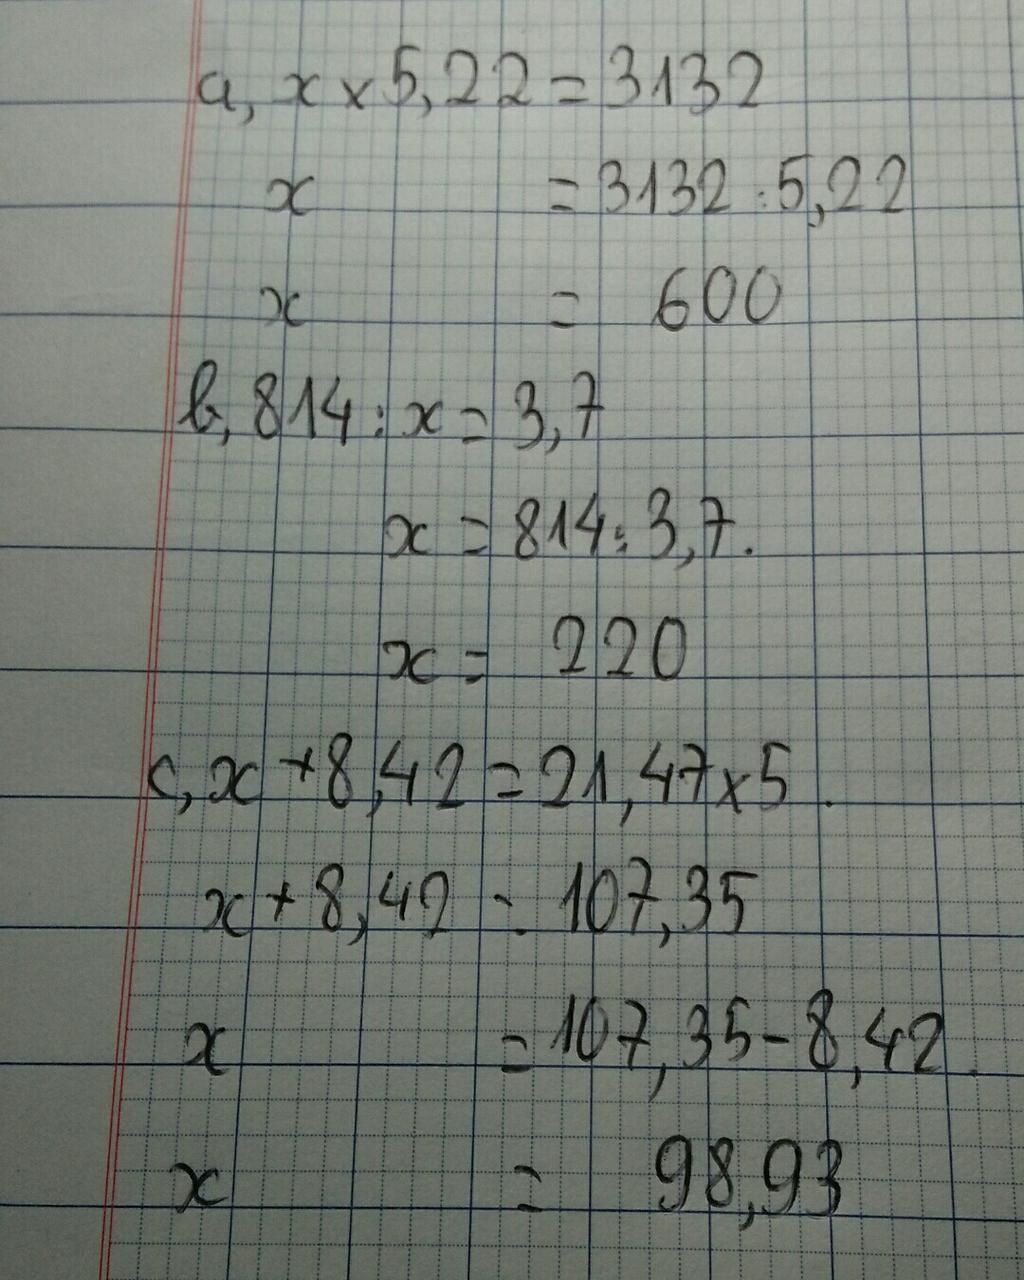 a, x x 5,22 = 3132
x = 3132 : 5,22
x = 600
b, 814 : x = 3,7
x = 814 : 3,7.
x = 220
c, x + 8,42 = 21,47 x 5.
x + 8,42 = 107,35
x = 107,35 - 8,42.
x = 98,93